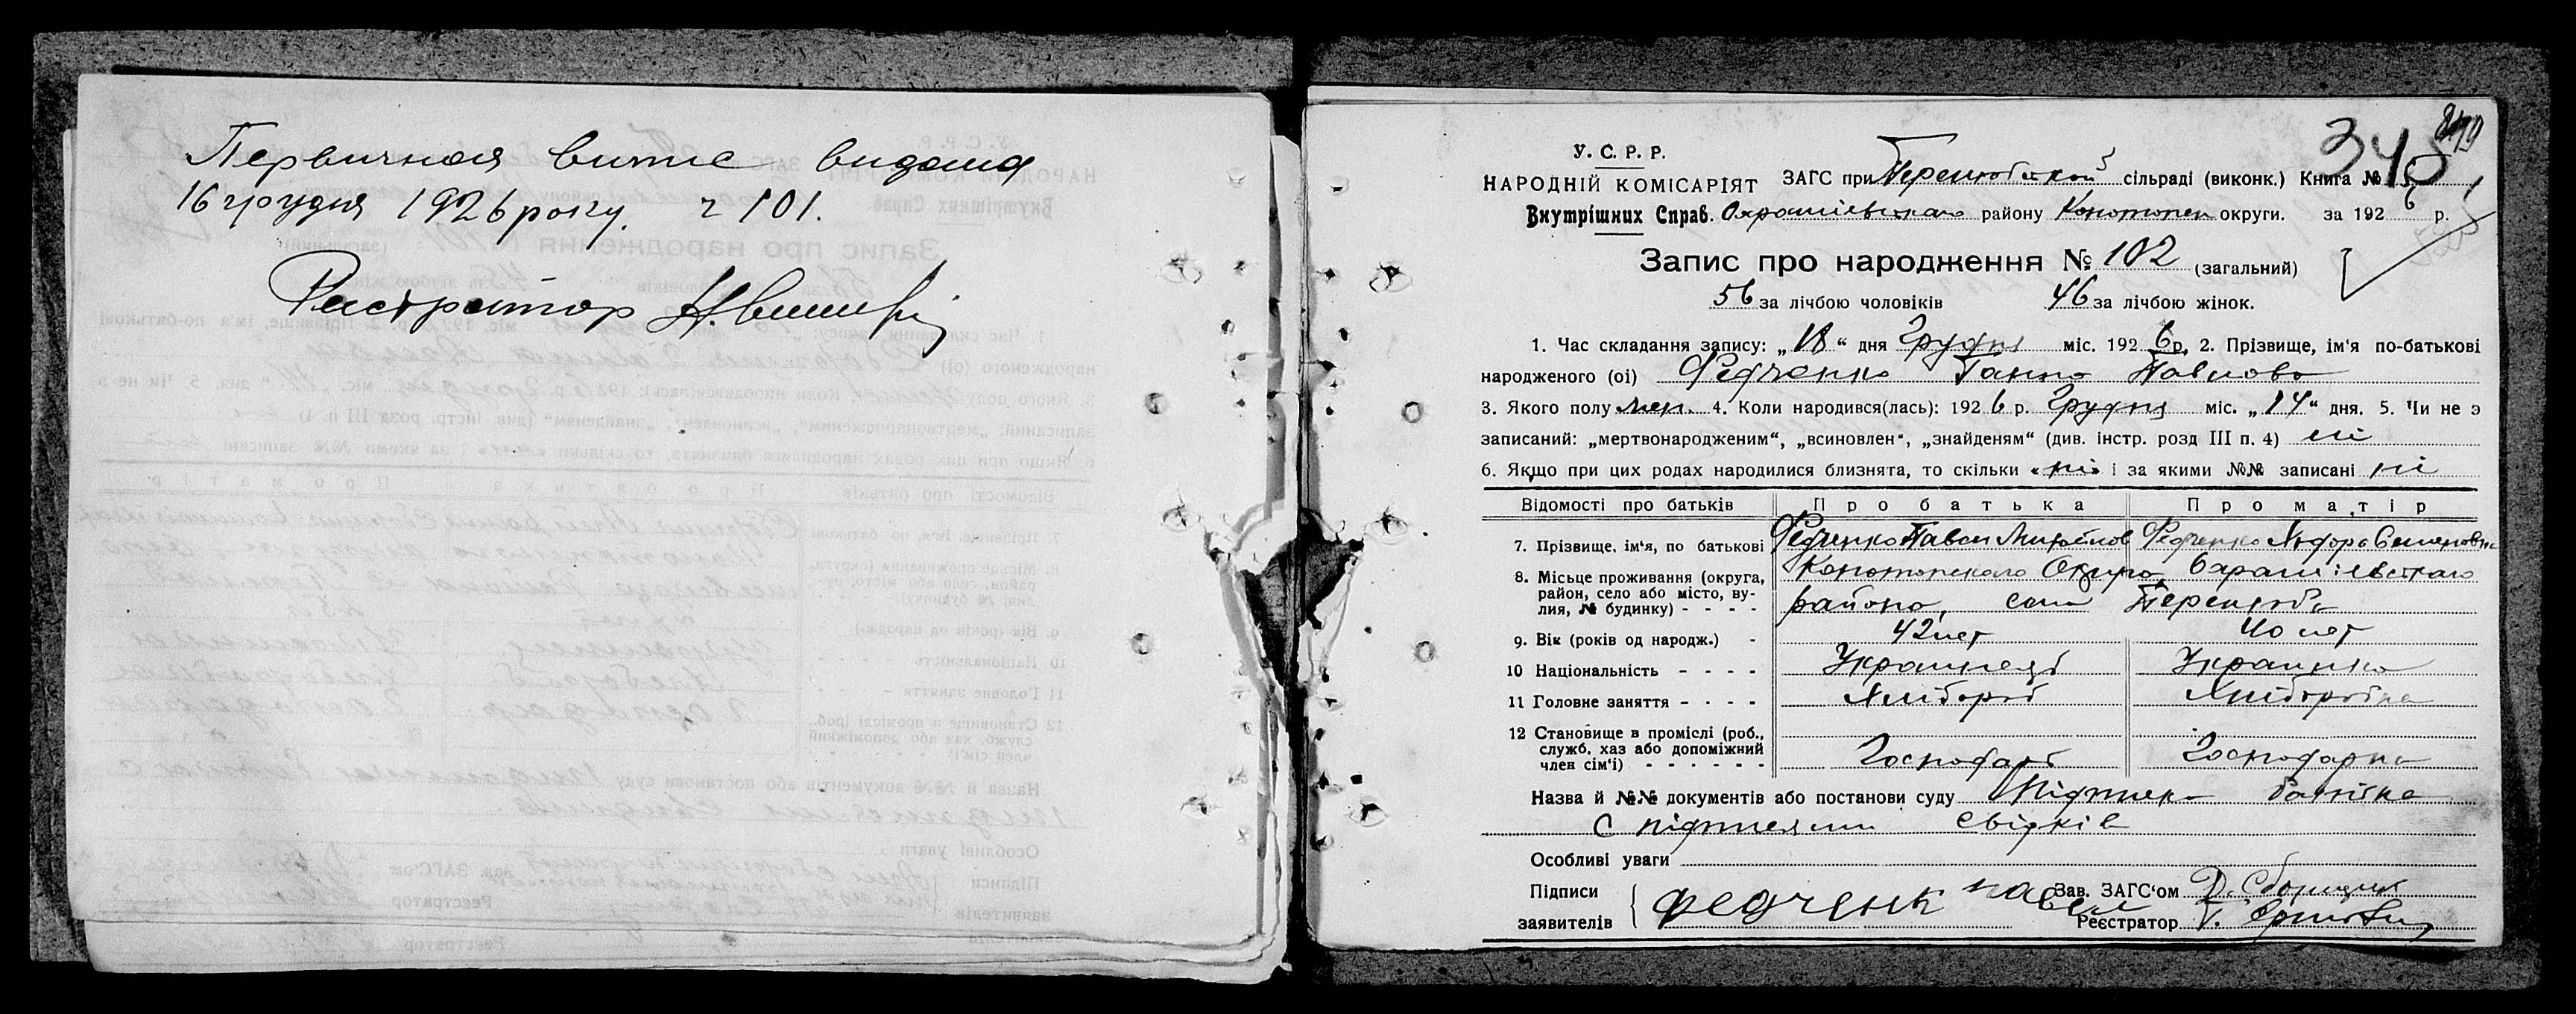 Первичная випис видана
16 грудня 1926 року. ч 101.
Риєстратор
У. С. Р. Р.
НАРОДНІЙ КОМІСАРІЯТ
Внутрішних Справ.
ЗАГС при Перелюбской сільраді (виконк.) Книга №
району Конотопск округи. за 1926 р.
Запис про народження № 102 (загальний)
56 за лічбою чоловіків 46 за лічбою жінок.
1. Час складання запису: „18“ дня Грудня міс. 1926 р. 2. Прізвище, ім'я по-батькові
народженого (ої) Федченко Ганна Павлова
3. Якого полу жен. 4. Коли народився(лась): 1926 р. Грудня міс. „14“ дня. 5. Чи не э
записаний: „мертвонародженим“, „всиновлен“, „знайденям“ (див. інстр. розд III п. 4) ні
6. Якщо при цих родах народилися близнята, то скільки „ні“ і за якими №№ записані ні
Відомості про батьків Про батька Про матір
7. Прізвище, ім‘я, по батькові Федченко Павел Михайлов Федченко Семеновна
8. Місьце проживання (округа, район, село або місто, вулия, № будинку) - - - - Конотопского Округа
района, села Перелюб
9. Вік (років од народж.) - 42 лет 40 лет
10 Національність - - - - Украинець Украинка
11 Головне заняття - - - - Хлибороб Хлиборобка
12 Становище в промислі (роб., служб. хаз або допоміжний член сім‘ї) - - - - - - Господарь Господарка
Назва й №№ документів або постанови суду Підписка батька
с підписями свідків
Особливі уваги
Підписи заявителів Федченк павел
Зав. ЗАГС‘ом
Реєстратор